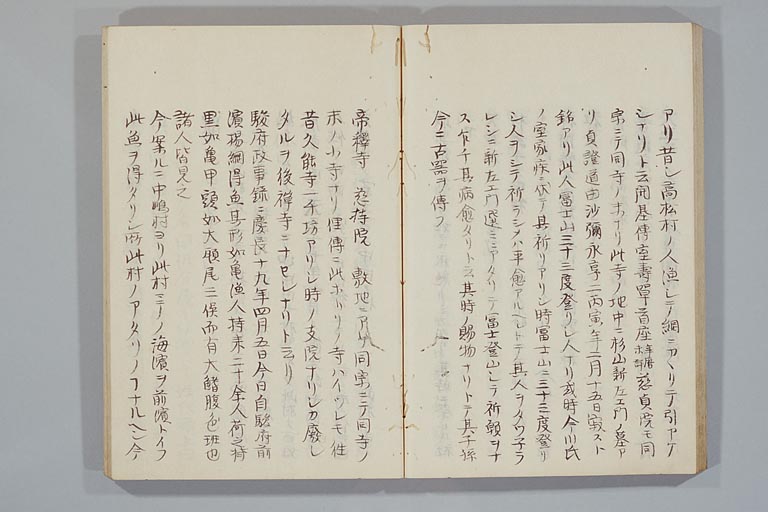 アリ昔シ高松村ノ人漁シテノ網ニカヽリテ引アケ
シナリト云開基傳室壽單首座慈貞院モ同
宗ニテ同寺ノ末ナリ此寺ノ地中ニ杉山新左エ門ノ墓ア
リ貞證道由沙彌永享二丙寅年二月十五日寂スト
銘アリ此人富士山三十三度登リシ人ナリ或時今川氏
ノ室家疾ニ伏テ其祈リアリシ時富士山ニ三十三度登リ
シ人ヲシテ祈ラシメハ事愈アルヘシトテ其人ヲタツネラ
レシニ新左エ門選ミニアタリテ富士登山シテ祈願ヲナ
ス乍チ其病愈タリト云其時ノ賜物ナリトテ其子孫
今ニ古器ヲ傳フ
帝釋寺 慈持院中 敷地ニアリ同宗ニテ同寺ノ
末ノ小寺ナリ俚傳ニ此ホトリノ寺ハイツレモ往
昔久能寺一千坊アリシ時ノ支院ナリシカ廢シ
タルヲ後禅寺ニナセシナリト云リ
駿府政事録ニ慶長十九年四月五日今日自駿府前
濱揚網得魚其形如亀漁人持来二十余人荷之持
黒如亀甲頭如犬頭尾二俣而有大鰭腹色班也
諸人皆見之
今案ルニ中嶋村ヨリ此村ニノ海濱ヲ前濱トイフ
此魚ヲ得タリシ所此村ノアタリノコナルヘシ今